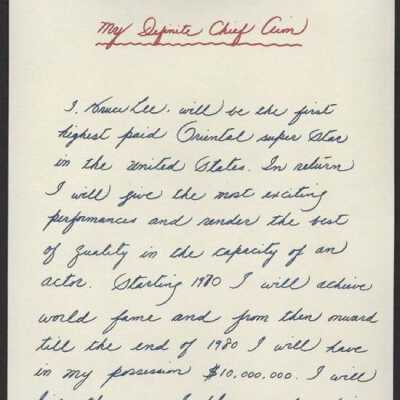 My Definite Chief Aim
I, Bruce Lee, will be the first
highest paid Oriental super star
in the United States. In return
I will give the most exciting
performances and render the best
of quality in the capacity of an
actor. Starting 1970 I will achieve
world fame and from then onward
till the end of 1980 I will have
in my possession $10,000,000. I will